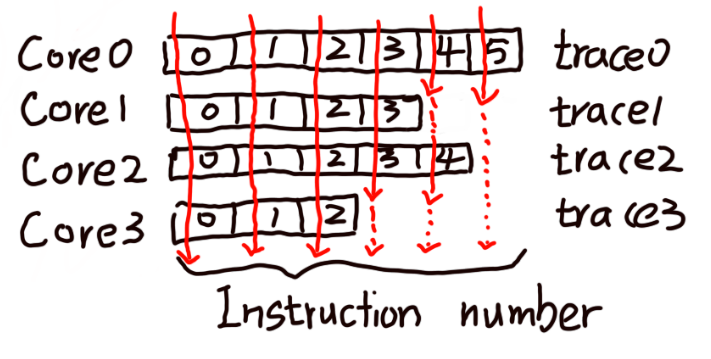 Core0 0 1 2 3 4 5 trace0
Core1 0 1 2 3 trace1
Core2 0 1 2 3 4 trace2
Core3 0 1 2 trace3
Instruction number